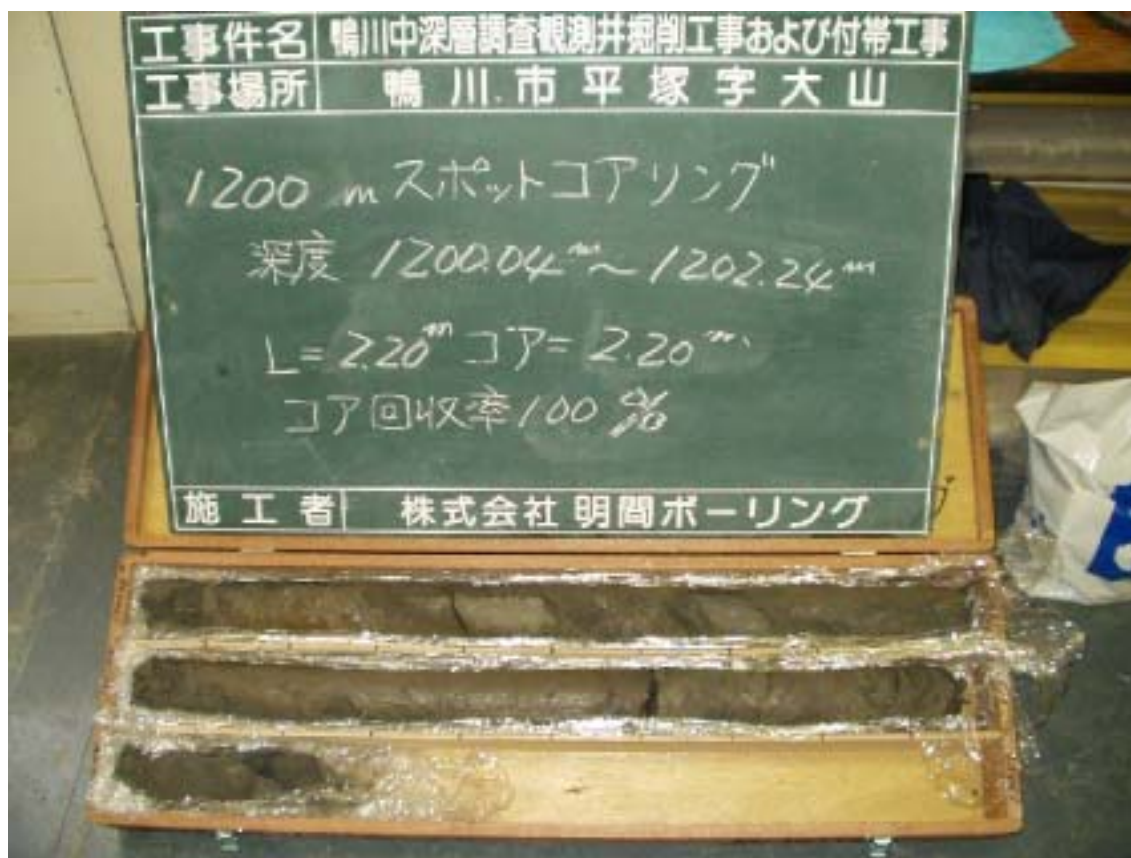 工事件名 鴨川中深層調査観測井掘削工事および付帯工事
工事場所 鴨川市平塚字大山
1200 m スポットコアリング
深度 1200.04m～1202.24m
L=2.20m コア=2.20m
コア回収率100%
施工者 株式会社明間ボーリング